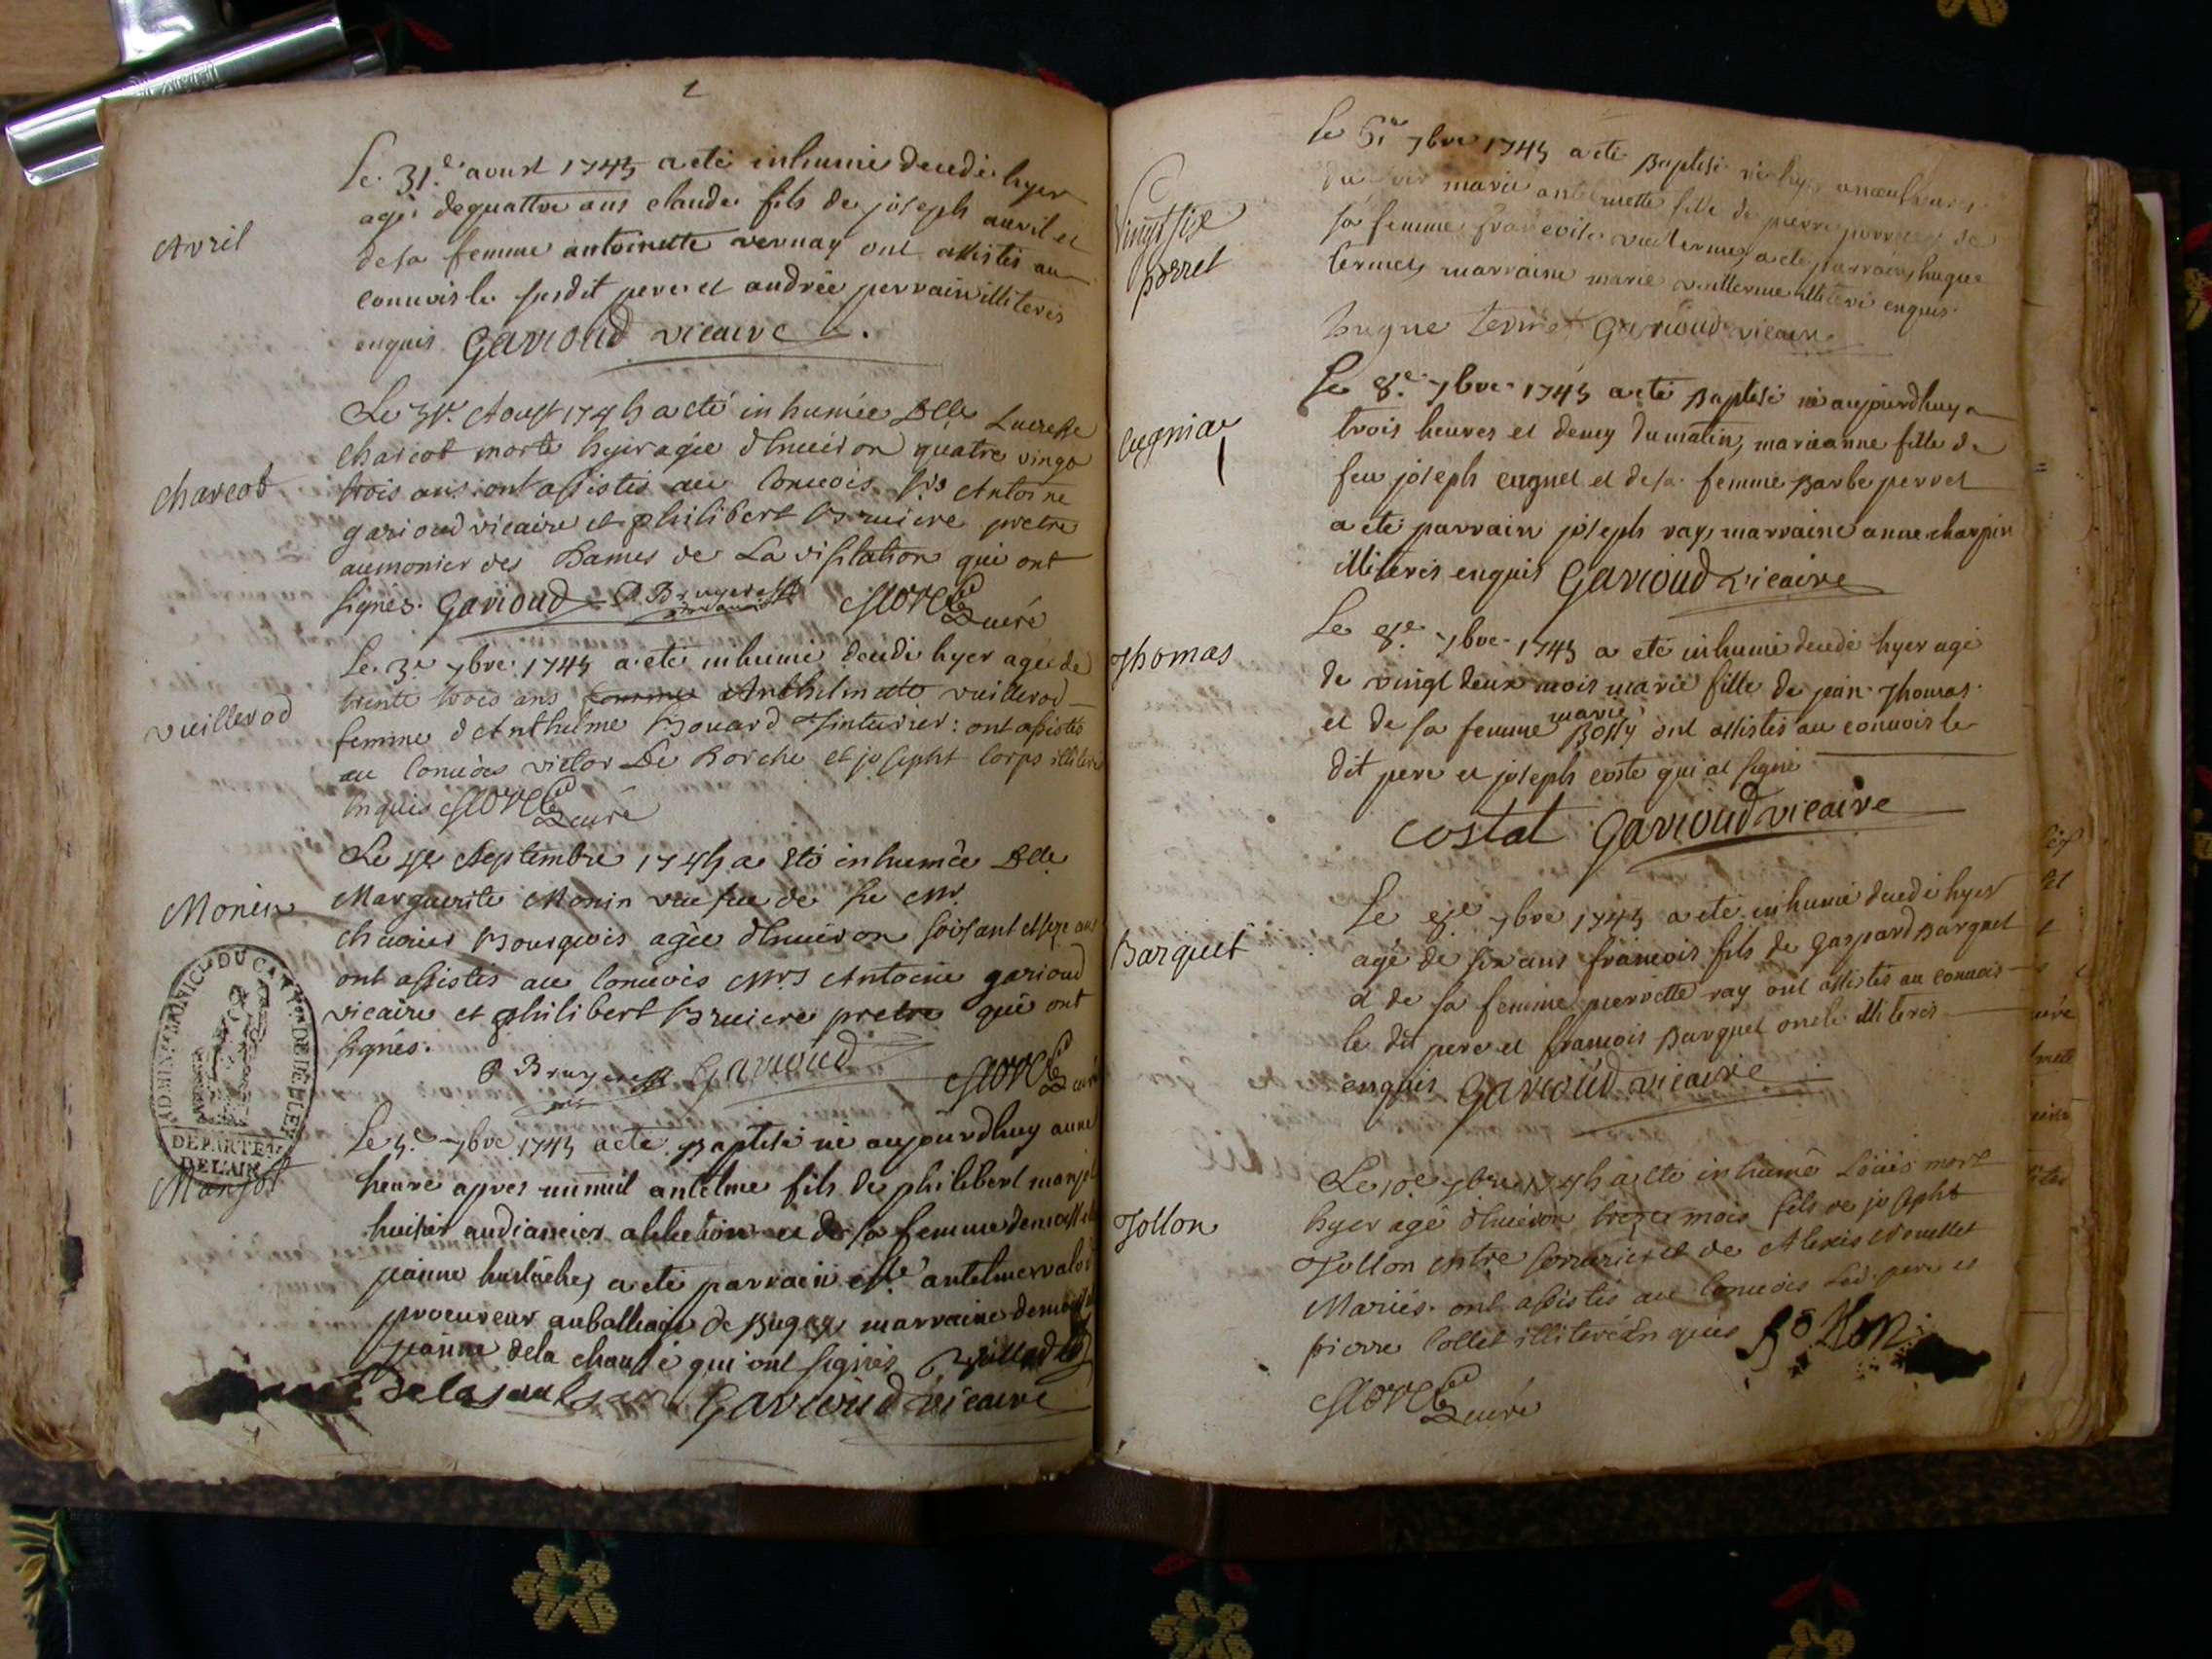 Avril
Le 31e aoust 1745 a eté inhumé decedé hyer
agé de quattre ans claude fils de joseph avril et
de sa femme antoinette vernay ont assistés au
convois le susdit pere et andrée perrain illiterés
enquis Garioud vicaire
charcot
Le 31e Aoust 1745 a eté inhumée Dlle Lucresse
charcot morte hyer agée d'environ quatre vingt
trois ans ont assistés au Convois Mrs Antoine
garioud vicaire et philibert Bruiere pretre
aumonier des Dames de La visitation qui ont
signés. Garioud P. Bruyere curé
vuillerod
Le 3e 7bre 1745 a eté inhumé decedé hyer agée de
trente trois ans Anthelmette vuillerod
femme d'Anthelme Bouard Tinturier: ont assistés
au Convois victor De Borche et josepht Corps illiterés
Enquis curé
Monin
Le 4e Septembre 1745 a Eté inhumée Dlle
Marguerite Monin veufue de feu Mr.
Bourgeois agée d'Environ soisant et seze ans
ont assistés au Convois Mrs Antoine garioud
vicaire et philibert Bruiere pretre qui ont
signés.
P Bruyere Garioud curé
ADMINIST. MUNICI. DU CANT. DE BELLEY
DEPARTEM.
DE L'AIN
Manjot
Le 5e 7bre 1745 a eté Baptisé né aujourdhuy a une
heure apres minuit antelme fils de philibert manjot
huisier audiancier et de sa femme demoiselle
jeanne a eté parrain Mre antelme
procureur au balliage de Bugey, marraine demoiselle
jeanne dela chaussé qui ont signés
Garioud vicaire
Vingt six
perret
Le 6e 7bre 1745 a eté Baptisé né hyer a neuf heures
du soir marie antelmette fille de pierre perret et de
sa femme francoise vuillerme, a eté parrain, hugue
termet, marraine marie vuillerme illiteré enquis
hugue termet Garioud vicaire
Cugnia
Le 8e 7bre 1745 a eté Baptisé né aujourdhuy a
trois heures et demy du matin, marieanne fille de
feu joseph cugnet et de sa femme Barbe perret
a eté parrain joseph ray, marraine anne charpin
illiterés enquis Garioud vicaire
Thomas
Le 8e 7bre 1745 a eté inhumé decedé hyer agé
de vingt deux mois marie fille de jean Thomas
et de sa femme marie Bossy ont assistés au convois le
dit pere et joseph coste qui at signé
costat Garioud vicaire
Barquet
Le 8e 7bre 1745 a eté inhumé decedé hyer
agé de six ans francois fils de Gaspard Barquet
et de sa femme pierrette ray ont assistés au convois
le dit pere et francois Barquet oncle illiterés
enquis Garioud vicaire
Tollon
Le 10e 7bre 1745 a Eté inhumé Loüis mort
hyer agé d'Environ treze mois fils de josepht
Tollon Mtre serrurier et de Alexis
Mariés. ont assistés au Convois Led. pere et
pierre Collet illiteré Enquis
curé